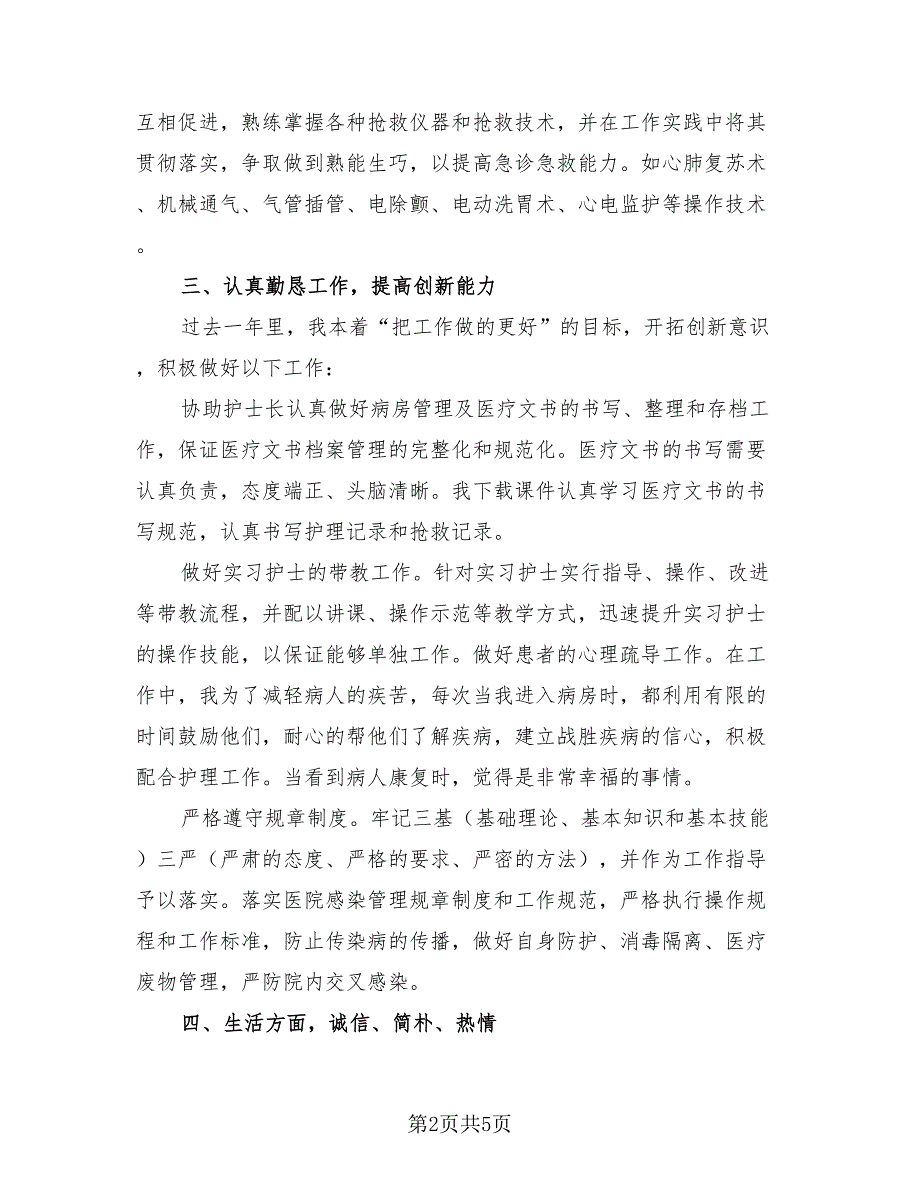 互相促进，熟练掌握各种抢救仪器和抢救技术，并在工作实践中将其
贯彻落实，争取做到熟能生巧，以提高急诊急救能力。如心肺复苏术
、机械通气、气管插管、电除颤、电动洗胃术、心电监护等操作技术
。
三、认真勤恳工作，提高创新能力
过去一年里，我本着“把工作做的更好”的目标，开拓创新意识
，积极做好以下工作：
协助护士长认真做好病房管理及医疗文书的书写、整理和存档工
作，保证医疗文书档案管理的完整化和规范化。医疗文书的书写需要
认真负责，态度端正、头脑清晰。我下载课件认真学习医疗文书的书
写规范，认真书写护理记录和抢救记录。
做好实习护士的带教工作。针对实习护士实行指导、操作、改进
等带教流程，并配以讲课、操作示范等教学方式，迅速提升实习护士
的操作技能，以保证能够单独工作。做好患者的心理疏导工作。在工
作中，我为了减轻病人的疾苦，每次当我进入病房时，都利用有限的
时间鼓励他们，耐心的帮他们了解疾病，建立战胜疾病的信心，积极
配合护理工作。当看到病人康复时，觉得是非常幸福的事情。
严格遵守规章制度。牢记三基（基础理论、基本知识和基本技能
）三严（严肃的态度、严格的要求、严密的方法），并作为工作指导
予以落实。落实医院感染管理规章制度和工作规范，严格执行操作规
程和工作标准，防止传染病的传播，做好自身防护、消毒隔离、医疗
废物管理，严防院内交叉感染。
四、生活方面，诚信、简朴、热情
第2页共5页